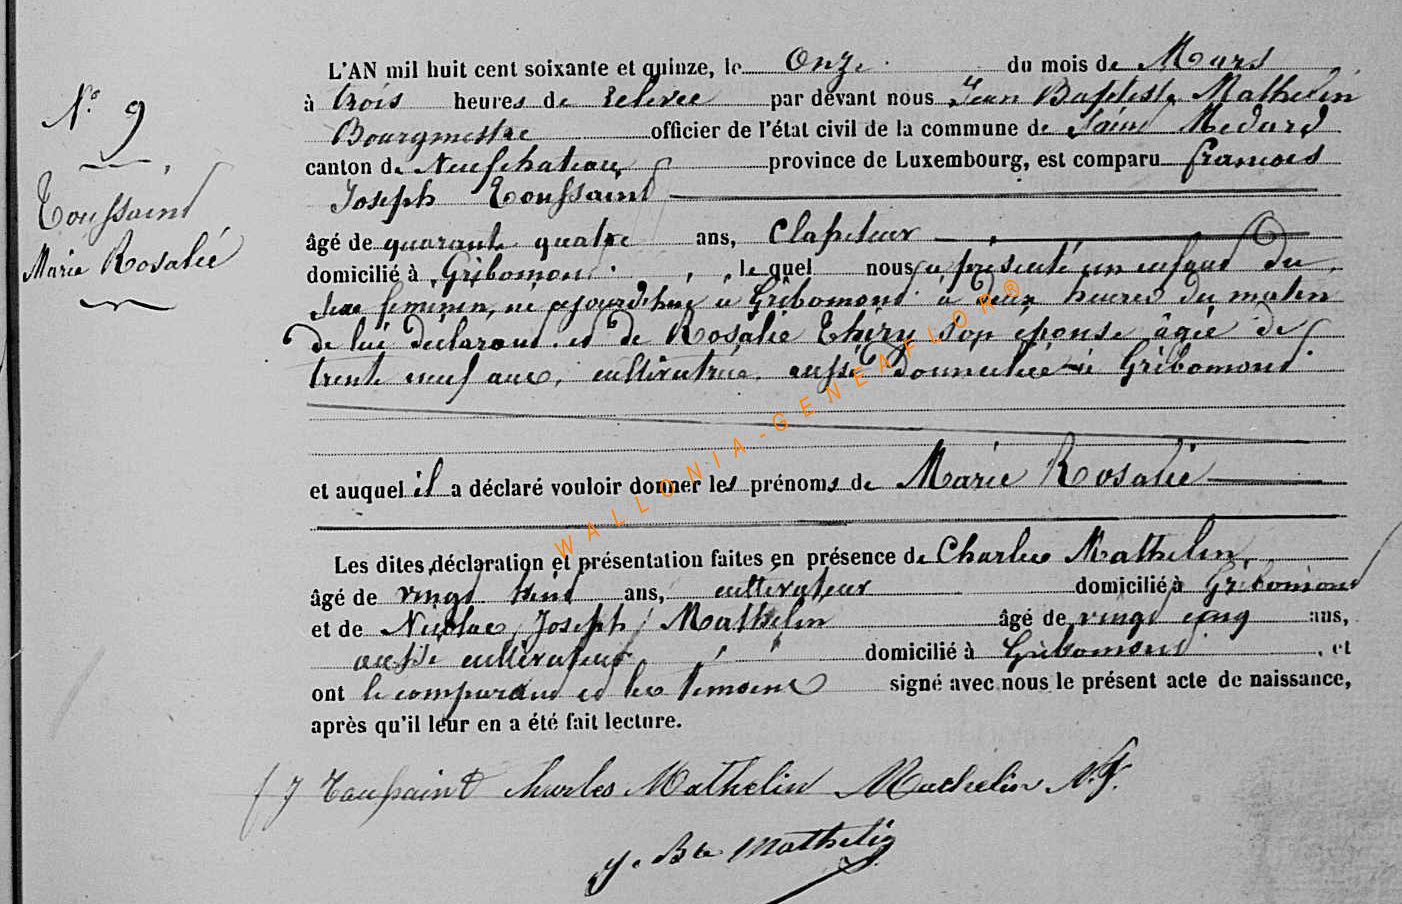 N.º 9
Toussaint
Marie Rosalie
L'AN mil huit cent soixante et quinze, le Onze du mois de Mars
à trois heures de relevée par devant nous Jean Baptiste Mathelin
Bourgmestre officier de l'état civil de la commune de Saint Medard
canton de Neufchateau province de Luxembourg, est comparu francois
Joseph Toussaint
âgé de quarante quatre ans,
domicilié à Gribomont, lequel nous a presenté un enfant du
sexe feminin, né aujourd'hui à Gribomont à deux heures du matin
de lui déclarant et de Rosalie Thiry son épouse âgée de
trente neuf ans, cultivatrice, aussi domiciliée à Gribomont
et auquel il a déclaré vouloir donner les prénoms de Marie Rosalie
Les dites déclaration et présentation faites en présence de Charles Mathelin
âgé de vingt ans, cultivateur domicilié à Gribomont
et de Nicolas Joseph Mathelin âgé de vingt cinq ans,
aussi cultivateur domicilié à Gribomont, et
ont le comparant et les temoins signé avec nous le présent acte de naissance,
après qu'il leur en a été fait lecture.
f J Toussaint Charles Mathelin Mathelin N. J.
J. Bte Mathelin
WALLONIA-GENEAFLOR®